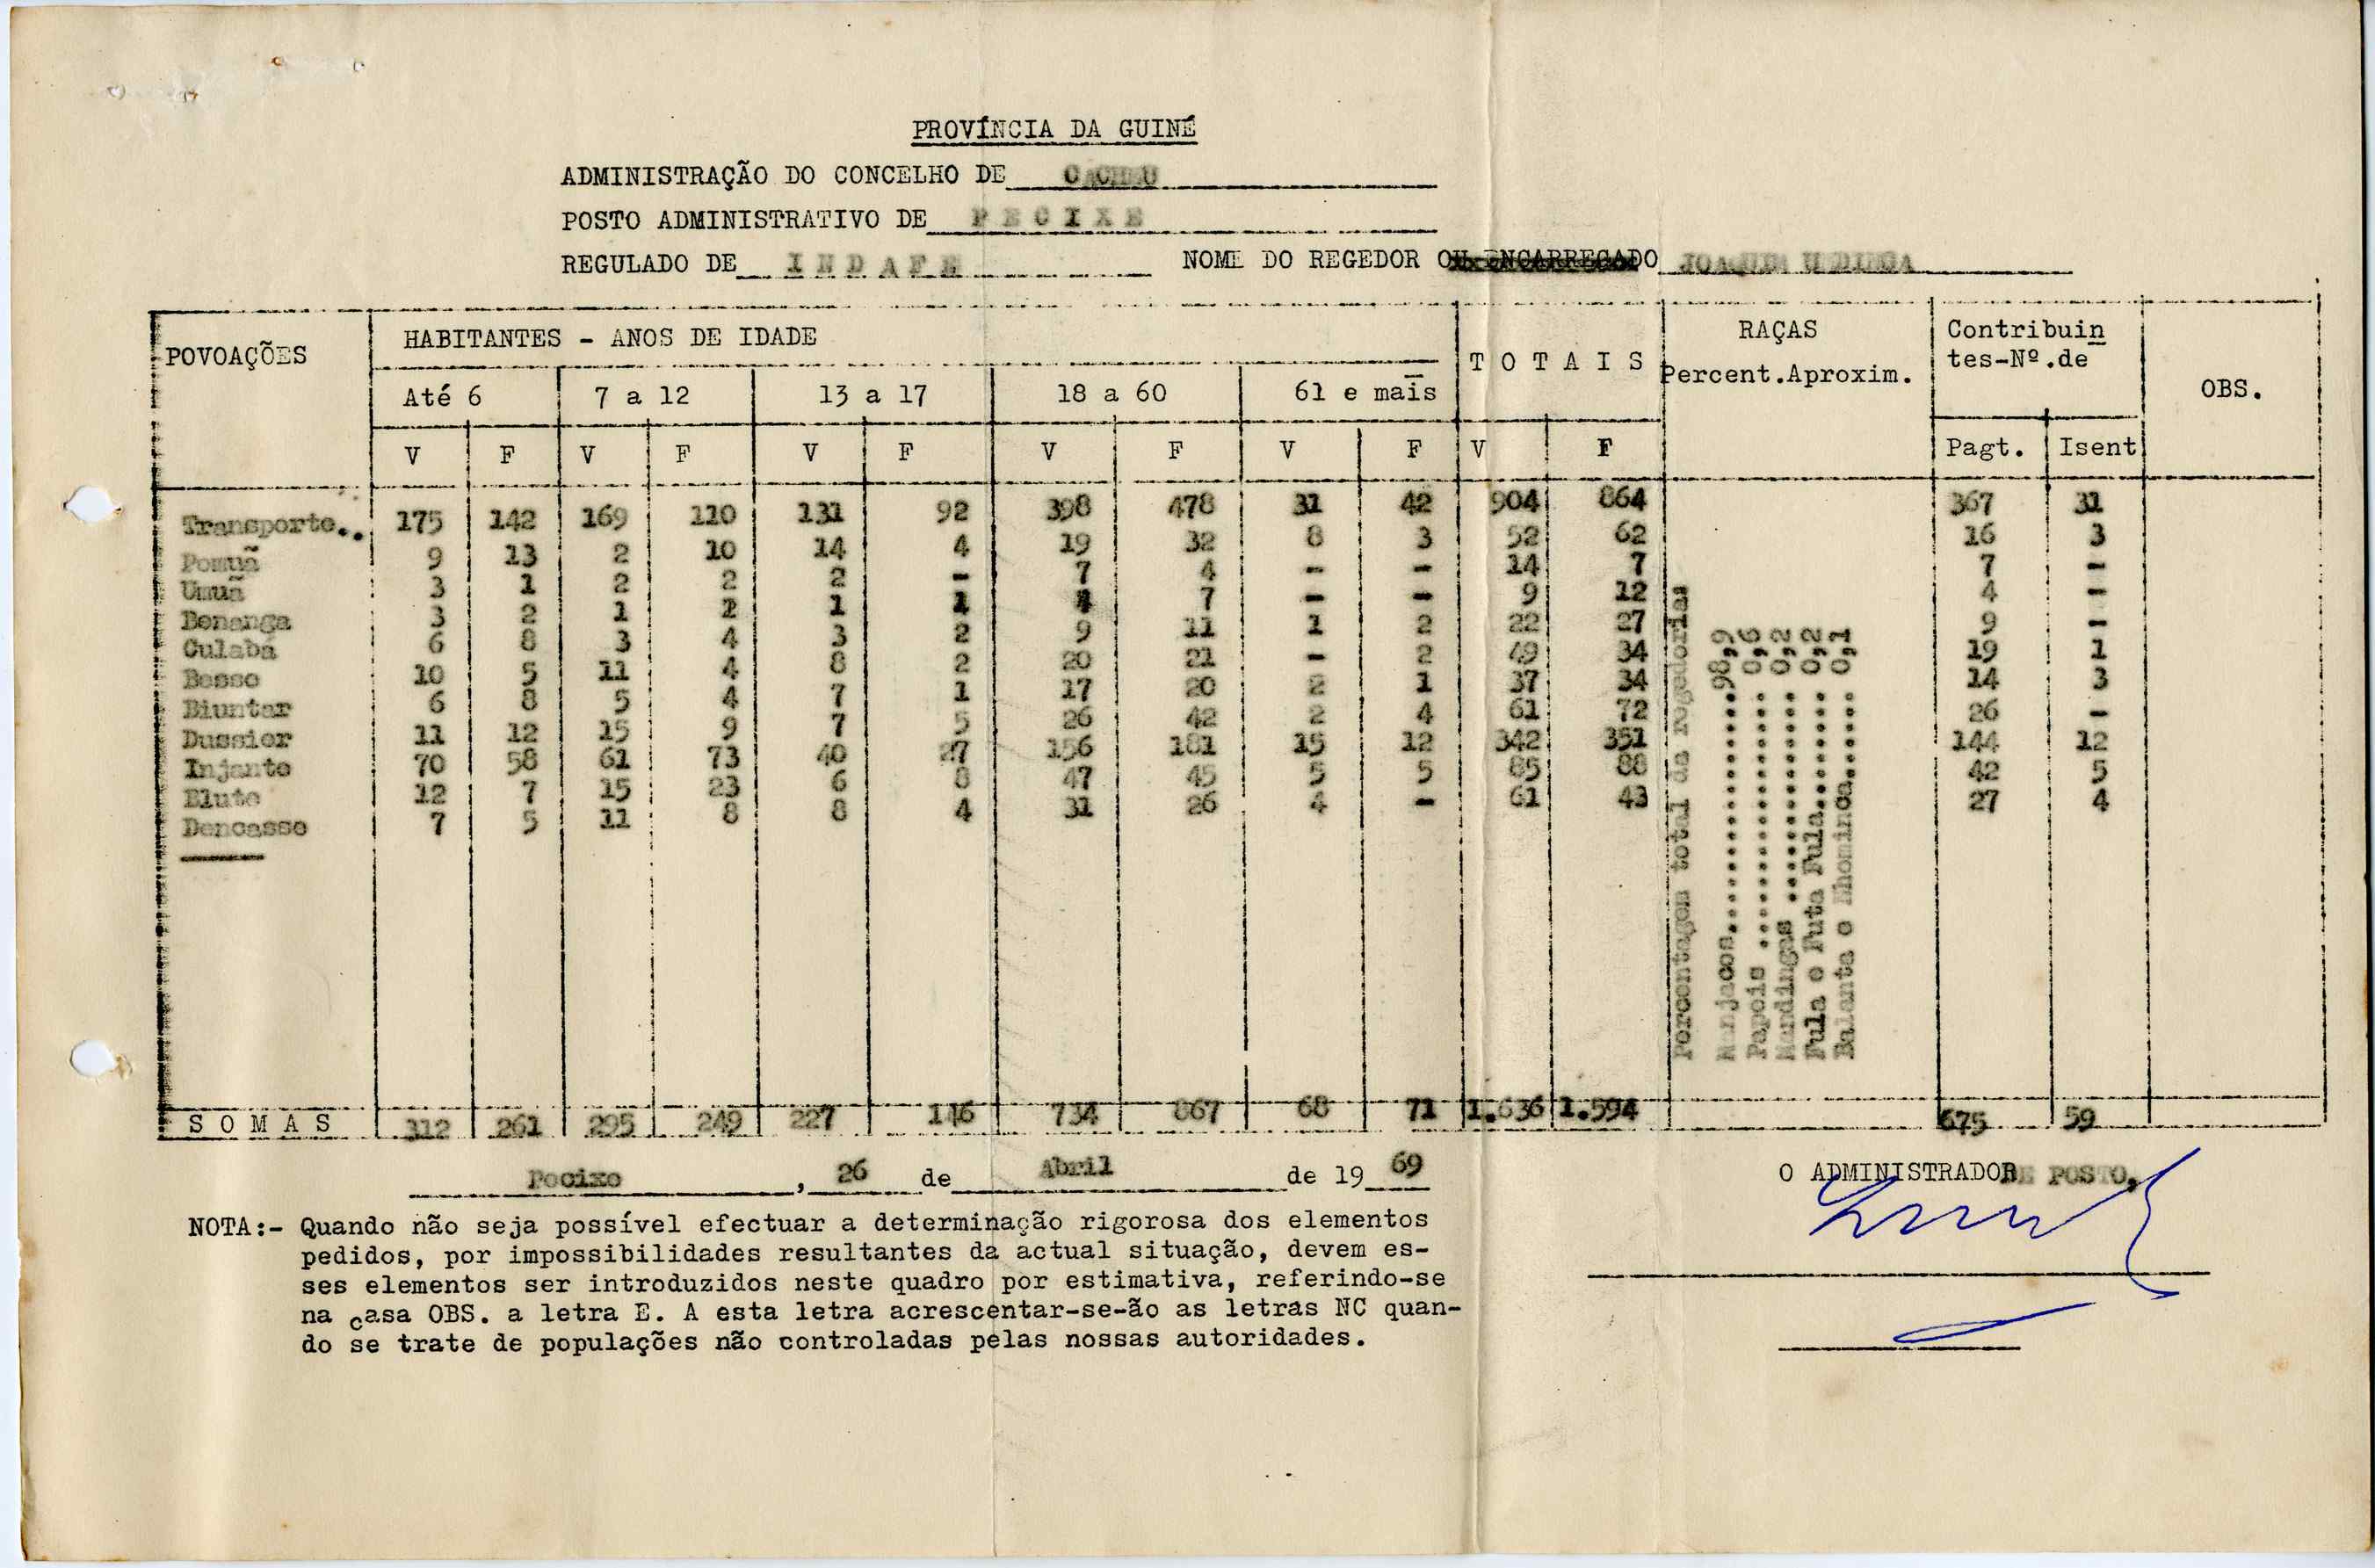 PROVÍNCIA DA GUINÉ
ADMINISTRAÇÃO DO CONCELHO DE CACHEU
POSTO ADMINISTRATIVO DE PECIXE
REGULADO DE INDAFE NOME DO REGEDOR OU ENCARREGADO JOAQUIM
POVOAÇÕES HABITANTES - ANOS DE IDADE T O T A I S RAÇAS Percent.Aproxim. Contribuin tes-Nº.de OBS.
Até 6 7 a 12 13 a 17 18 a 60 61 e mais
V F V F V F V F V F V F Pagt. Isent
Transporte.. 175 142 169 110 131 92 398 478 31 42 904 864 367 31
Pomuã 9 13 2 10 14 4 19 32 8 3 52 62 16 3
Umuã 3 1 2 2 2 - 7 4 - - 14 7 7 -
Benanga 3 2 1 1 1 7 - - 9 12 4 -
Culabá 6 8 3 4 3 2 9 11 1 2 22 27 9 -
Besso 10 5 11 4 8 2 20 21 - 2 49 34 19 1
Biuntar 6 8 5 4 7 1 17 20 2 1 37 34 14 3
Dussier 11 12 15 9 7 5 26 42 2 4 61 72 26 -
Injante 70 58 61 73 40 27 156 181 15 12 342 351 144 12
Elute 12 7 15 23 6 8 47 45 5 5 85 88 42 5
Dencasso 7 5 11 8 8 4 31 26 4 - 61 43 27 4
Percentagem total da regedorias
Manjacos..................98,9
Papeis .................. 0,6
Mandingas ............... 0,2
Fula e Futa Fula......... 0,2
Balanta e Nhominca....... 0,1
S O M A S 312 261 295 249 227 146 734 867 68 71 1.636 1.594 675 59
Pecixe, 26 de Abril de 19 69
O ADMINISTRADOR DE POSTO,
NOTA:- Quando não seja possível efectuar a determinação rigorosa dos elementos
pedidos, por impossibilidades resultantes da actual situação, devem es-
ses elementos ser introduzidos neste quadro por estimativa, referindo-se
na casa OBS. a letra E. A esta letra acrescentar-se-ão as letras NC quan-
do se trate de populações não controladas pelas nossas autoridades.